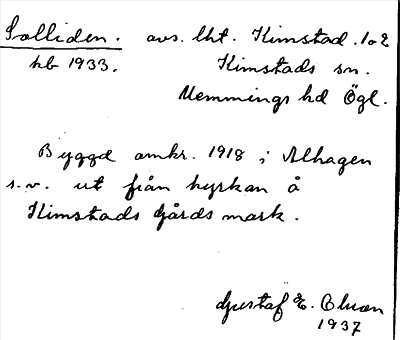 Solliden. avs. lht. Kimstad. 1o2
hb 1933. Kimstads sn.
Memmings hd Ögl.
Byggd omkr. 1918 i Alhagen
s.v. ut från kyrkan å
Kimstads Gårds mark.
Gustaf E.
1937